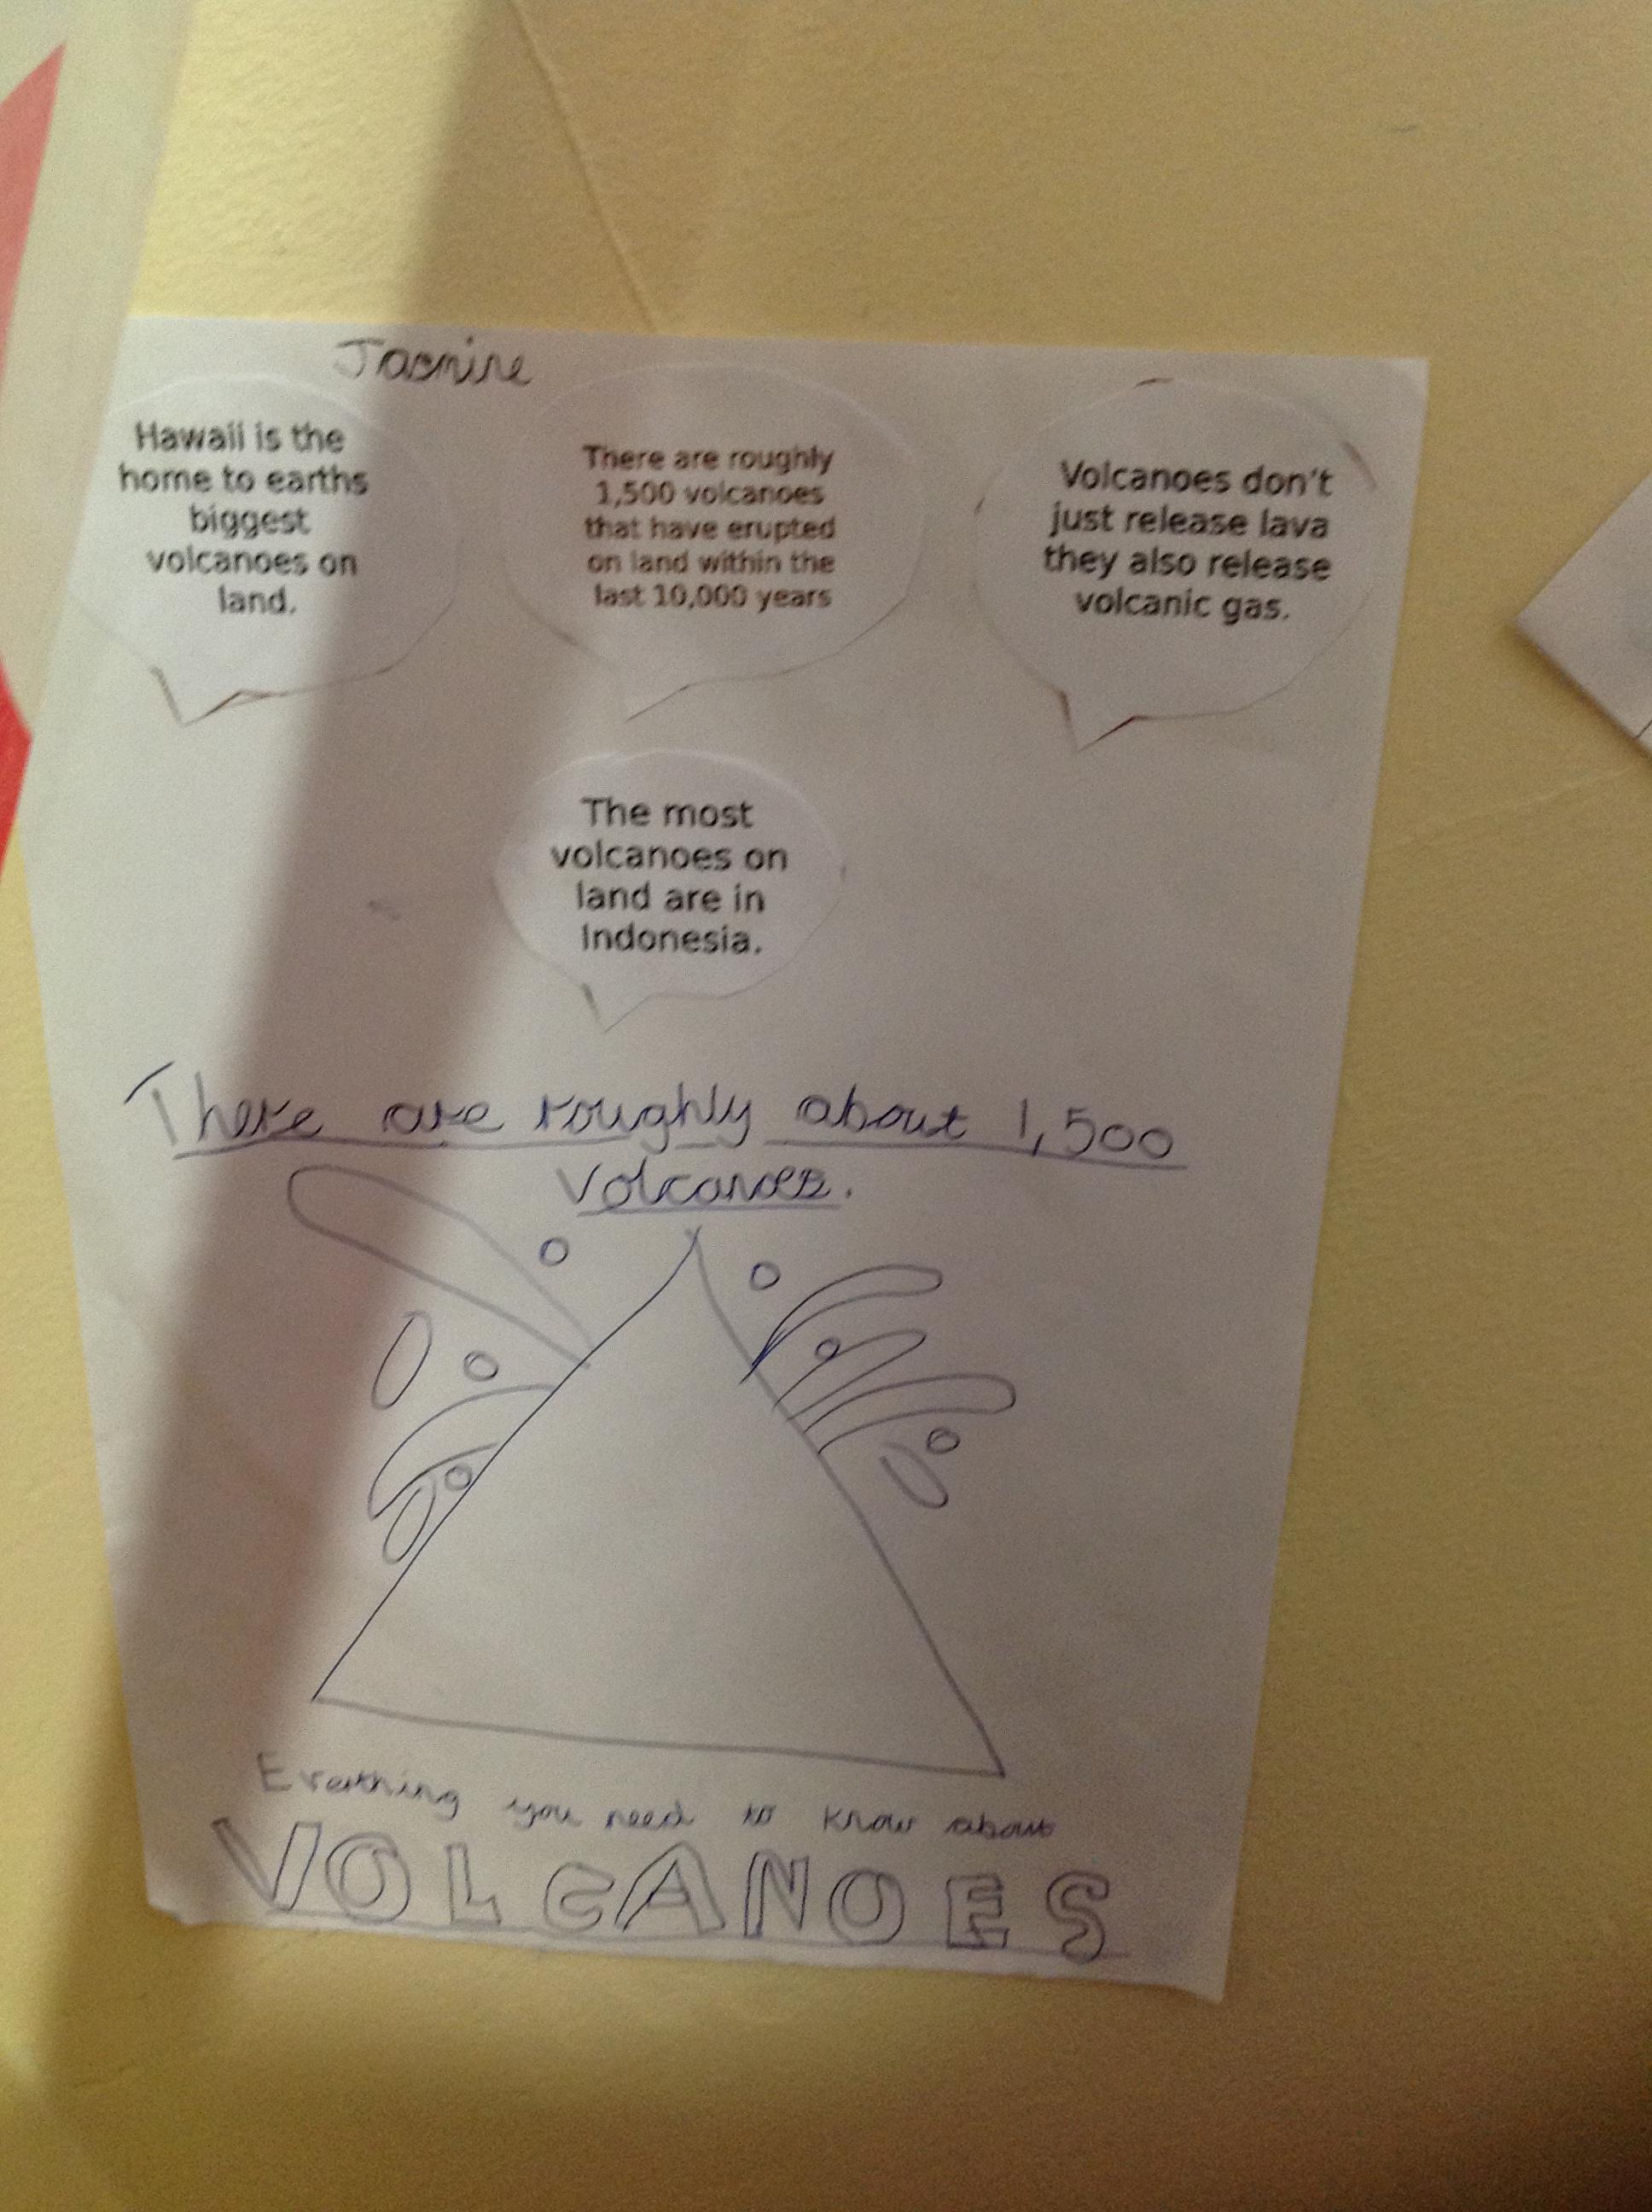 Jasmine
Hawaii is the
home to earths
biggest
volcanoes on
land.
There are roughly
1,500 volcanoes
that have erupted
on land within the
last 10,000 years
Volcanoes don't
just release lava
they also release
volcanic gas.
The most
volcanoes on
land are in
Indonesia.
There are roughly about 1,500
Volcanoes.
Everthing you need to know about
VOLCANOES